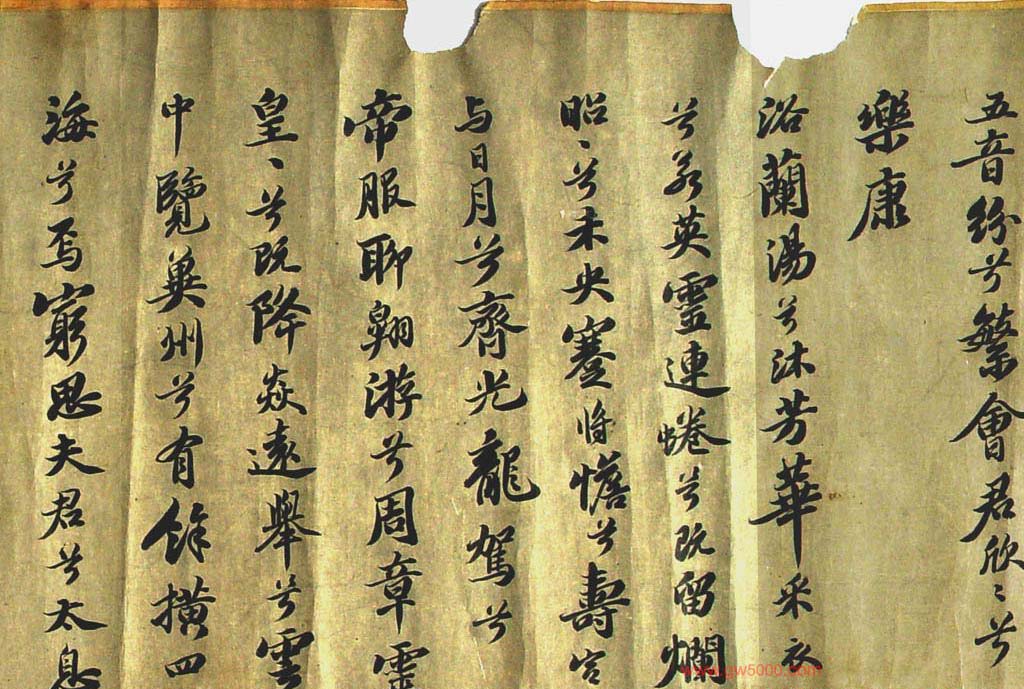 五音纷兮繁會君欣〻兮
樂康
浴蘭湯兮沐芳華采衣
兮若英靈連蜷兮既留爛
昭〻兮未央蹇將憺兮壽宮
与日月兮齊光龍駕兮
帝服聊翱游兮周章靈
皇〻兮既降焱遠舉兮雲
中覽兾州兮有餘横四
海兮焉窮思夫君兮太息